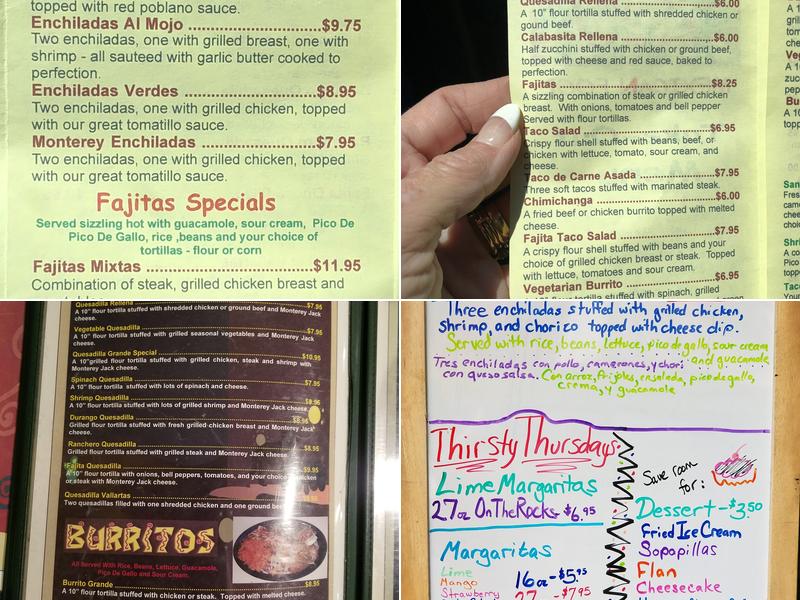 topped with red poblano sauce.
Enchiladas Al Mojo ........................$9.75
Two enchiladas, one with grilled breast, one with
shrimp - all sauteed with garlic butter cooked to
perfection.
Enchiladas Verdes ........................$8.95
Two enchiladas, one with grilled chicken, topped
with our great tomatillo sauce.
Monterey Enchiladas ........................$7.95
Two enchiladas, one with grilled chicken, topped
with our great tomatillo sauce.
Fajitas Specials
Served sizzling hot with guacamole, sour cream, Pico De
Pico De Gallo, rice ,beans and your choice of
tortillas - flour or corn
Fajitas Mixtas ........................$11.95
Combination of steak, grilled chicken breast and
Quesadilla Rellena ........................$6.00
A 10" flour tortilla stuffed with shredded chicken or
gound beef.
Calabasita Rellena ........................$6.00
Half zucchini stuffed with chicken or ground beef,
topped with cheese and red sauce, baked to
perfection.
Fajitas ........................$8.25
A sizzling combination of steak or grilled chicken
breast. With onions, tomatoes and bell pepper
Served with flour tortillas.
Taco Salad ........................$6.95
Crispy flour shell stuffed with beans, beef, or
chicken with lettuce, tomato, sour cream, and
cheese.
Taco de Carne Asada ........................$7.95
Three soft tacos stuffed with marinated steak.
Chimichanga ........................$6.00
A fried beef or chicken burrito topped with melted
cheese.
Fajita Taco Salad ........................$7.95
A crispy flour shell stuffed with beans and your
choice of grilled chicken breast or steak. Topped
with lettuce, tomatoes and sour cream.
Vegetarian Burrito ........................$6.95
flour tortilla stuffed with spinach, grilled
Quesadilla Rellena ........................$7.95
A 10" flour tortilla stuffed with shredded chicken or ground beef and Monterey Jack
cheese.
Vegetable Quesadilla ........................$7.95
A 10" flour tortilla stuffed with grilled seasonal vegetables and Monterey Jack
cheese.
Quesadilla Grande Special ........................$10.95
A 10"grilled flour tortilla stuffed with grilled chicken, steak and shrimp with
Monterey Jack cheese.
Spinach Quesadilla ........................$7.95
A 10" flour tortilla stuffed with lots of spinach and cheese.
Shrimp Quesadilla
A 10" flour tortilla stuffed with lots of grilled shrimp and Monterey Jack cheese.
Durango Quesadilla ........................$8.95
Grilled flour tortilla stuffed with fresh grilled chicken breast and Monterey Jack
cheese.
Ranchero Quesadilla ........................$8.95
Grilled flour tortilla stuffed with grilled steak and Monterey Jack cheese.
Fajita Quesadilla ........................$9.95
A 10" flour tortilla with onions, bell peppers, tomatoes, and your choice chicken
or steak with Monterey Jack cheese.
Quesadilla Vallartas
Two quesadillas filled with one shredded chicken and one ground beef
BURRITOS
All Served With Rice, Beans, Lettuce, Guacamole,
Pico De Gallo and Sour Cream.
Burrito Grande ........................$8.95
A 10" flour tortilla stuffed with chicken or steak. Topped with melted cheese.
Three enchiladas stuffed with grilled chicken,
shrimp, and chorizo topped with cheese dip.
Served with rice, beans, lettuce, pico de gallo, sour cream
and guacamole
Tres enchiladas con pollo, camerones, y chori
con queso salsa. Con arroz, frijoles, ensalada, pico de gallo,
crema, y guacamole
Thirsty Thursdays:
Lime Margaritas
27oz On The Rocks - $6.95
Margaritas
Lime
Mango
Strawberry
16oz - $5.95
27 - $7.95
Save room
for:
Dessert - $3.50
Fried Ice Cream
Sopapillas
Flan
Cheesecake